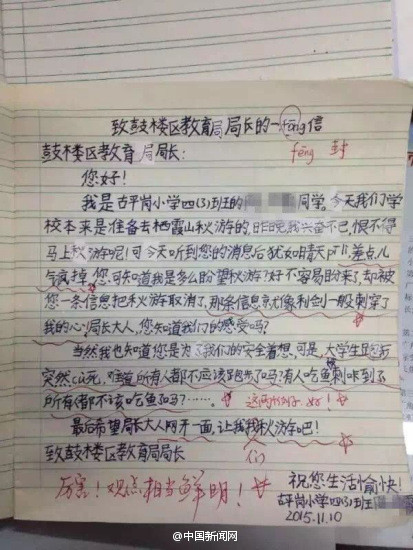 致鼓楼区教育局局长的一fēng信
fēng 封
鼓楼区教育局局长:
您好!
我是古平岗小学四(3)班的 同学。今天我们学
校本来是准备去栖霞山秋游的,昨晚我兴奋不已,恨不得
马上秋游呢!可今天听到您的消息后犹如晴天pī lì,差点儿
气疯掉。您可知道我是多么盼望秋游?好不容易盼来了,却被
您一条信息把秋游取消了,那条信息就像利剑一般刺穿了
我的心。局长大人,您知道我们的感受吗?
当然我也知道您是为了我们的安全着想,可是,大学生跑步
突然cù死,难道所有人都不应该跑步了吗?有人吃鱼刺咔到了,
所有人都不该吃鱼了吗?…… 这两句好!
最后希望局长大人网开一面,让我秋游吧!
们
致鼓楼区教育局局长
厉害!观点相当鲜明!
祝您生活愉快!
古平岗小学四(3)班
2015.11.10
@中国新闻网